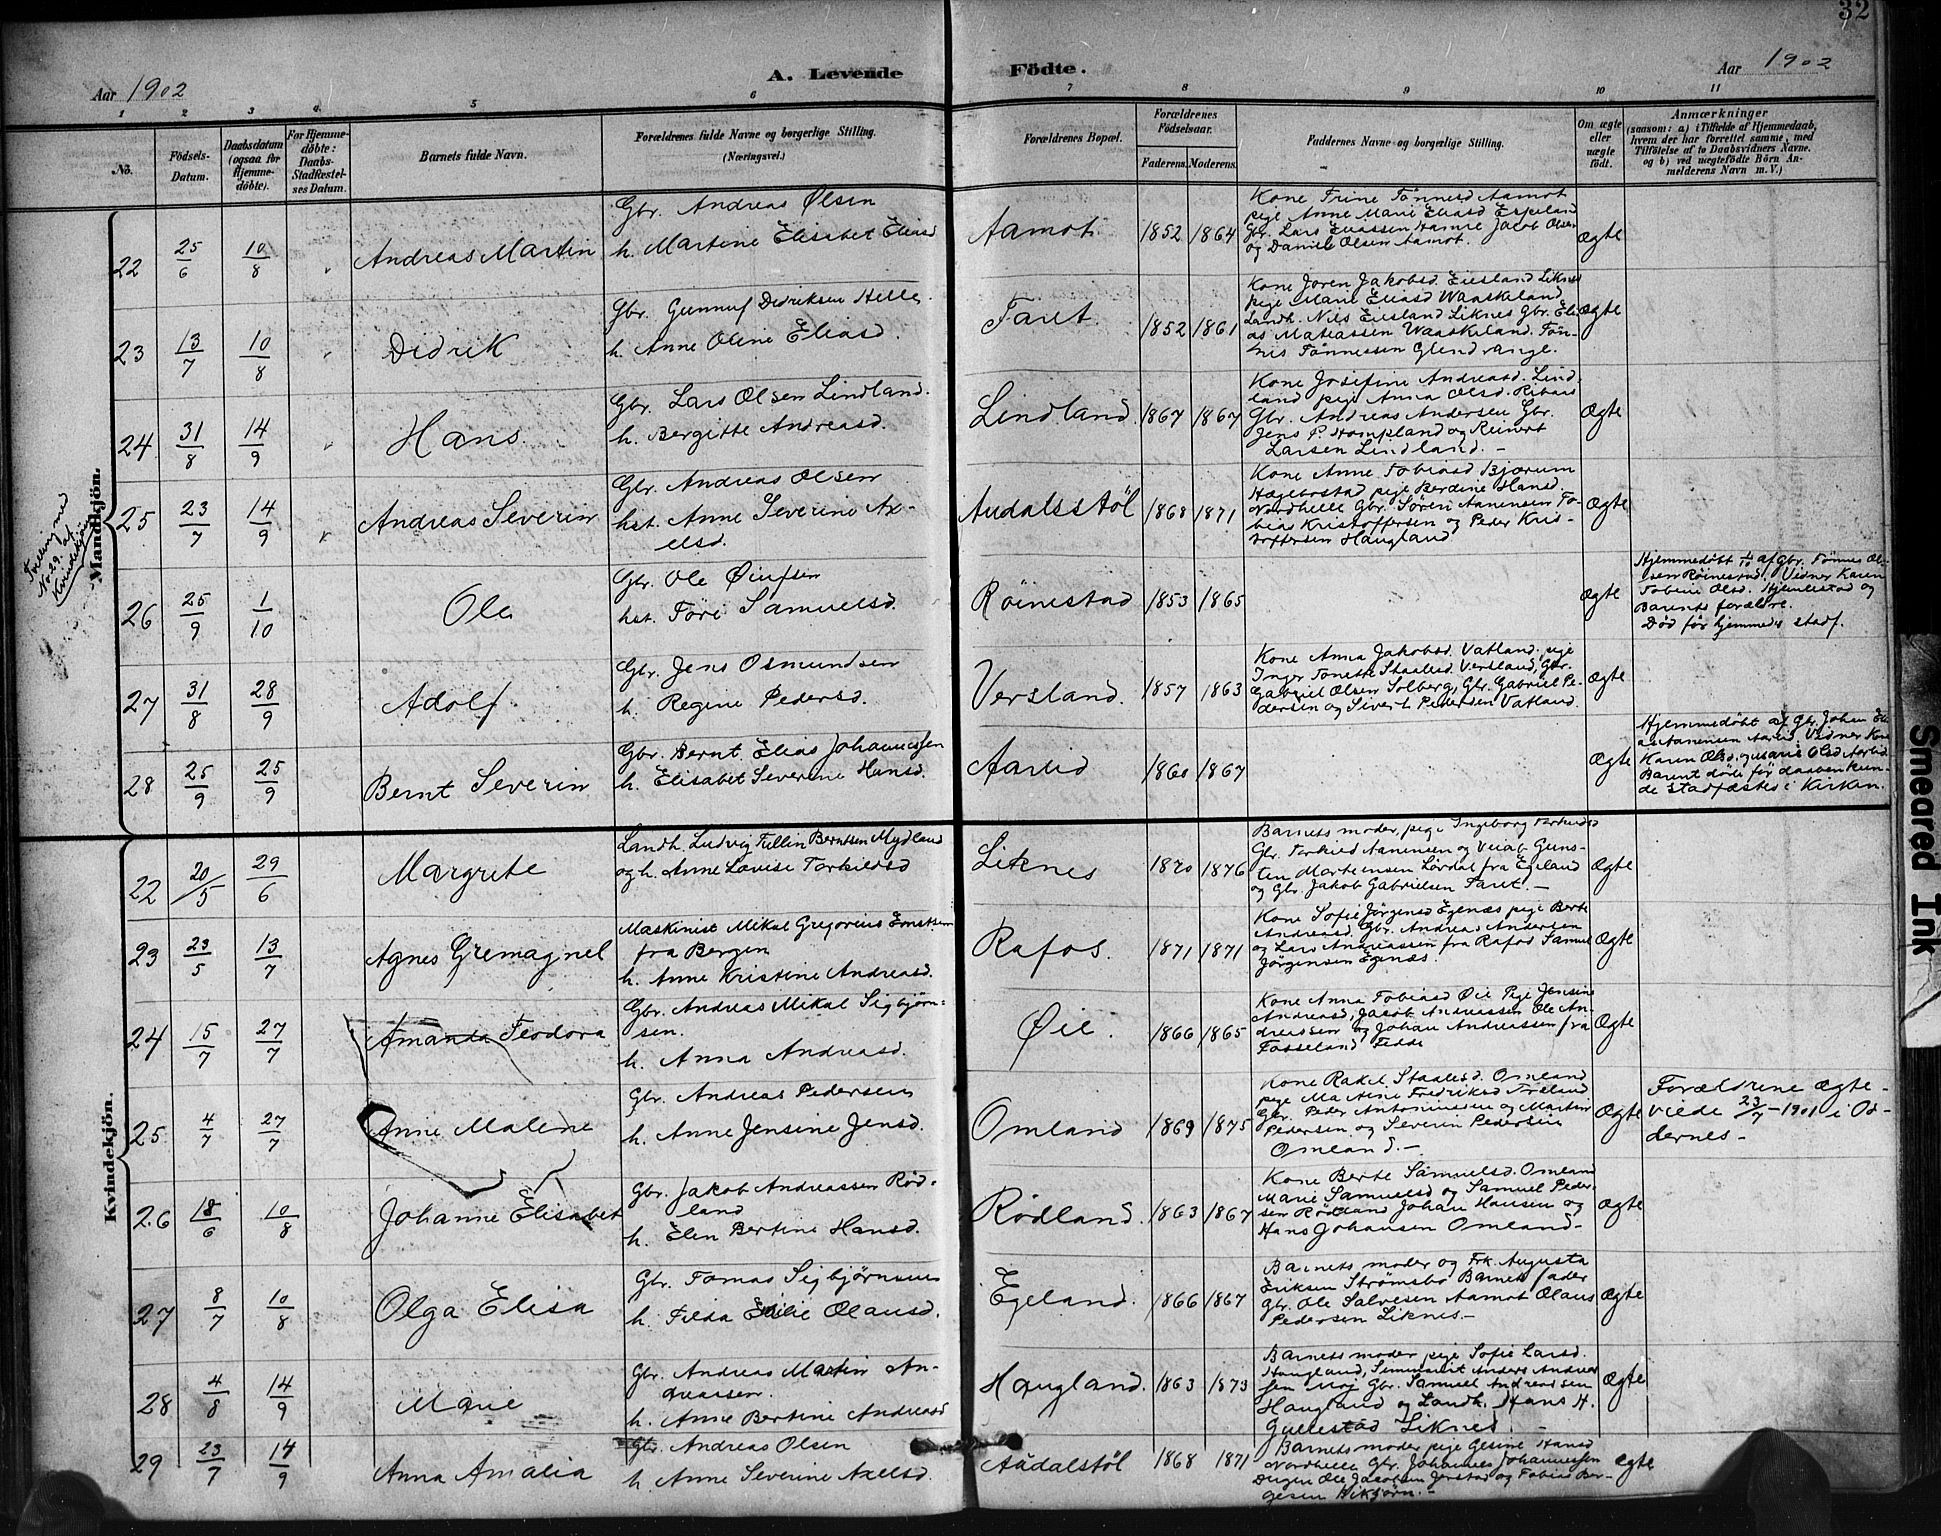 32
Aar 1902
A. Levende Födte.
Aar 1902
1 2 3 4 5 6 7 8 9 10 11
No.
Födsels-Datum.
Daabsdatum (ogsaa for Hjemme-döbte).
For Hjemme-döbte: Daabs-Stadfæstel-ses Datum.
Barnets fulde Navn.
Forældrenes fulde Navne og borgerlige Stilling. (Næringsvei.)
Forældrenes Bopæl.
Forældrenes Födselsaar.
Faderens. Moderens.
Faddernes Navne og borgerlige Stilling.
Om ægte eller uægte födt.
Anmærkninger
(saasom: a) i Tilfælde af Hjemmedaab, hvem der har forrettet samme, med Tilföielse af to Daabsvidners Navne. og b) ved uægtefödte Börn An-melderens Navn m. V.)
Mandkjön.
22 25/6 10/8 Andreas Martin
Gbr. Andreas Olsen
h. Martine Elisabet Eliasd
Aamot. 1852 1864
Kone Trine Tönnesd Aamot
pige Anne Marie Eliasd Espeland
Gbr. Lars Eliassen Hamre Jacob Olsen
og Daniel Olsen Aamot.
Ægte
23 13/7 10/8 Didrik
Gbr. Gunnuf Didriksen Helle.
h. Anne Oline Eliasd.
Faret. 1852 1861
Kone Joren Jakobsd. Eiesland Liknes
pige Marie Eliasd Waaskeland
Landh. Nils Eiesland Liknes Gbr. Eli-
as Matiassen Waaskeland. Tön-
nes Tönnessen Glendrange.
Ægte
24 31/8 14/9 Hans.
Gbr. Lars Olsen Lindland.
h. Bergitte Andreasd.
Lindland. 1867 1867
Kone Josefine Andreasd. Lind
land pige Anna Olsd.
Gbr. Andreas Andersen Gbr.
Jens P. Hompland og Reinert
Larsen Lindland. -
Ægte
Trilling med
No. 29. af
Kvindekjön
25 23/7 14/9 Andreas Severin
Gbr. Andreas Olsen
hst. Anne Severine Ax-
elsd.
Audalsstöl 1868 1871
Kone Anne Tobiasd Bjærum
Hægebostad pige Berdine Hansd.
Nordhelle Gbr. Sören Aanensen To-
bias Kristoffersen og Peder Kris-
toffersen Haugland
Ægte
26 25/9 1/10 Ole
Gbr. Ole
hst. Töre Samuelsd.
Röinestad 1853 1865
Ægte
Hjemmedöbt 1/10 af Gbr. Tönnes Ol-
sen Röinestad. Vidner Karen
Tobine Olsd. og
Barnets forældre.
Död för hjemmeds stadf.
27 31/8 28/9 Adolf.
Gbr. Jens Osmundsen
h. Regine Pedersd.
Versland. 1857 1863
Kone Anna Jakobsd. Vatland. pige
Inger Tonette Staalesd. Versland, Gbr.
Gabriel Olsen Solberg, Gbr. Gabriel Pe-
dersen og Sivert Pedersen Vatland.
Ægte
28 25/9 25/9 Bernt Severin
Gbr. Bernt Elias Johannessen
h. Elisabet Severine Hansd.
Aarlid 1860 1867
Ægte
Hjemmedöbt af Gbr. Johan Eli
as Aanensen Aarlid. Vidner Kone
Karen Olsd. og Marie Olsd Aarlid
Barnet döde för daaben kun-
de stadfæstes i Kirken.
Kvindekjön.
22 20/5 29/6 Margrete
Landh. Ludvig Tellin Berntsen Mydland
og h. Anne Lovise Torkildsd
Liknes 1870 1876
Barnets moder, pige Ingeborg Torkildsd
Gbr. Torkild Aanensen og Guns-
ten Martinsen Lördal fra Egeland
og Gbr. Jakob Gabrielsen Faret. -
Ægte
23 23/5 13/7 Agnes Gremagnel
Maskinist Mikal Gregorius Enoksen
fra Bergen
h. Anne Kristine Andreasd.
Rafos. 1871 1871
Kone Sofie Jörgensd Egenæs pige Berte
Andreasd. Gbr. Andreas Andersen
og Lars Andreassen fra Rafos Samuel
Jörgensen Egenæs.
Ægte
24 15/7 27/7 Amanda Teodora
Gbr. Andreas Mikal Sigbjörn-
sen.
h. Anna Andreasd.
Öie. 1866 1865
Kone Anna Tobiasd Öie Pige Jensine
Andreasd, Jacob Andreassen Ole An-
dreassen og Johan Andreassen fra
Fosseland Fedde
Ægte
25 4/7 27/7 Anne Malene
Gbr. Andreas Pedersen
h. Anne Jensine Jensd.
Omland 1869 1875
Kone Rakel Staalesd. Omland
pige Matene Fredriksd Fröland
Gbr. Peder Antonnissen og Martin
Pedersen og Severin Pedersen
Omland. -
Ægte
Forældrene ægte-
viede 23/7 - 1901 i Od-
dernes -
26 18/6 10/8 Johanne Elisabet
Gbr. Jakob Andreassen Röd-
land
h. Elen Bertine Hansd.
Rödland. 1863 1867
Kone Berte Samuelsd. Omland
Marie Samuelsd og Samuel Peder-
sen Rödland Johan Hansen og
Hans Johansen Omland -
Ægte
27 8/7 10/8 Olga Elisa
Gbr. Tomas Sigbjörnsen
h. Tilda Emilie Olausd.
Egeland. 1866 1867
Barnets moder og Frk. Augusta
Eriksen Strömsbo Barnets fader
Gbr. Ole Salvesen Aamot Olaus
Pedersen Liknes. -
Ægte
28 4/8 14/9 Marie
Gbr. Andreas Martin An-
dreassen.
h. Anne Bertine Andreasd
Haugland. 1863 1873
Barnets moder pige Sofie Larsd.
Haugland, Anders Andreas
sen Moj Gbr. Samuel Andreassen
Haugland og Landh. Hans H.
Gullestad Liknes. -
Ægte
29 23/7 14/9 Anna Amalia
Gbr. Andreas Olsen
h. Anne Severine Axelsd.
Audalstöl 1868 1871
Barnets moder pige Gesine Hansd
Nordhelle Gbr. Johannes Johannessen
Ole Jacobsen Jerstad og Tobias Ber-
gesen
Ægte
Smeared Ink